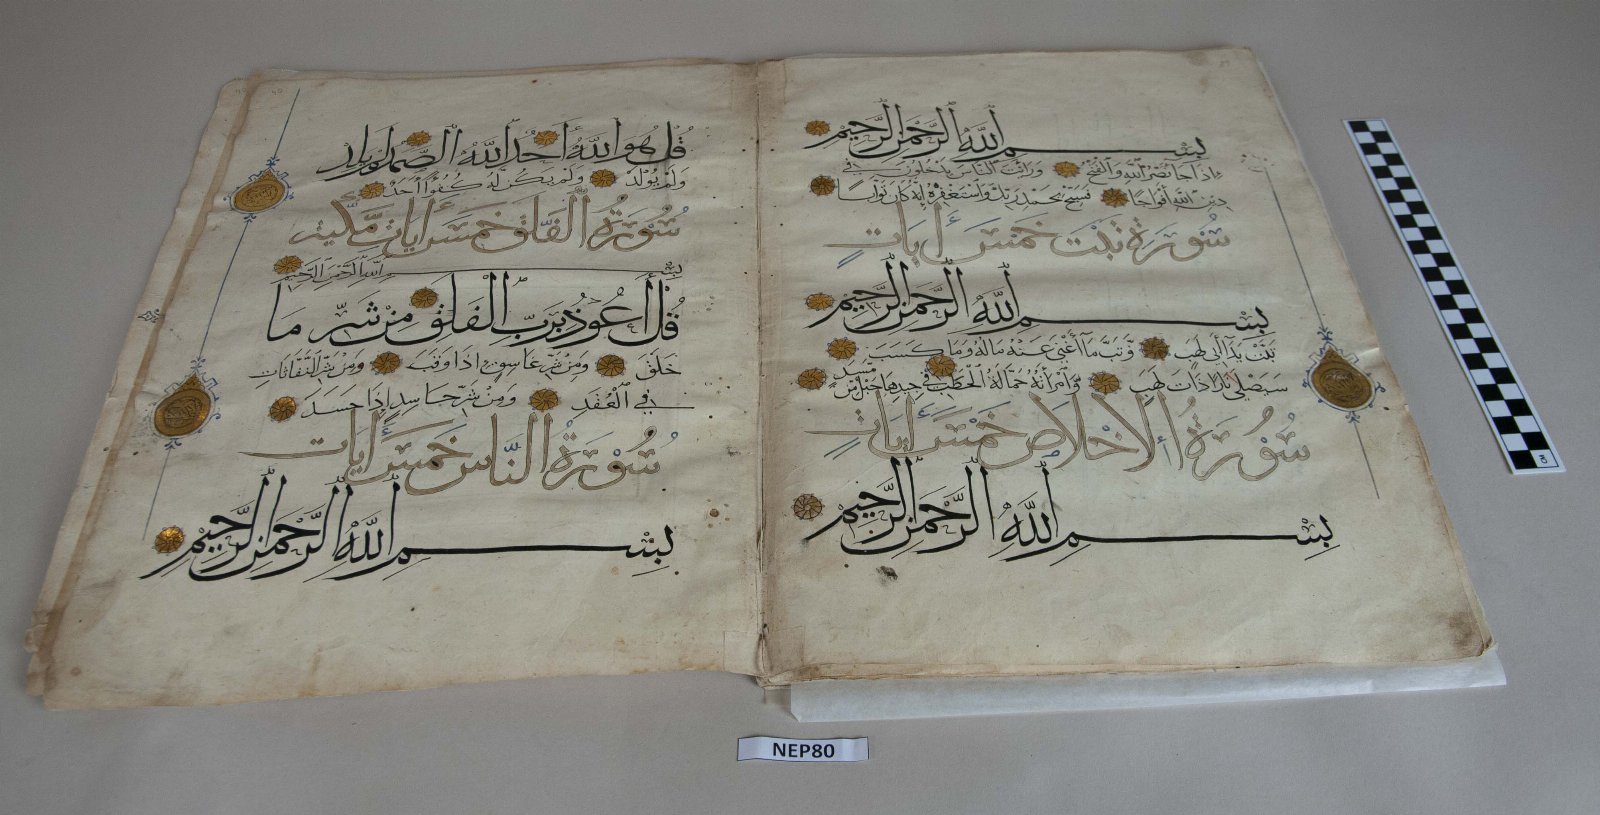 بسم الله الرحمن الرحيم
إذا جا نصر الله والفتح ورأيت الناس يدخلون في
دين الله أفواجا فسبح بحمد ربك واستغفره إنه كان توابا
سورة تبت خمس آيات
بسم الله الرحمن الرحيم
تبت يدا أبي لهب وتب ما أغنى عنه ماله وما كسب
سيصلى نارا ذات لهب وامرأته حمالة الحطب في جيدها حبل من مسد
سورة الاخلاص خمس آيات
بسم الله الرحمن الرحيم
قُل هُو اَللّهُ أَحَدٌ اَللّهُ الصَّمَد لم يلد
ولم يولد ولم يكن له كفوا أحد
سُورَةُ الفَلَق خمس آيات مكية
بسم الله الرحمن الرحيم
قُل أَعُوذُ بِرَبِّ الْفَلَقِ مِن شَرِّ مَا
خلق ومن شر غاسق إذا وقب ومن شر النفاثات
في العقد ومن شر حاسد إذا حسد
سُورَةُ النَّاس خمس آيات
بسم الله الرحمن الرحيم
NEP80
CM